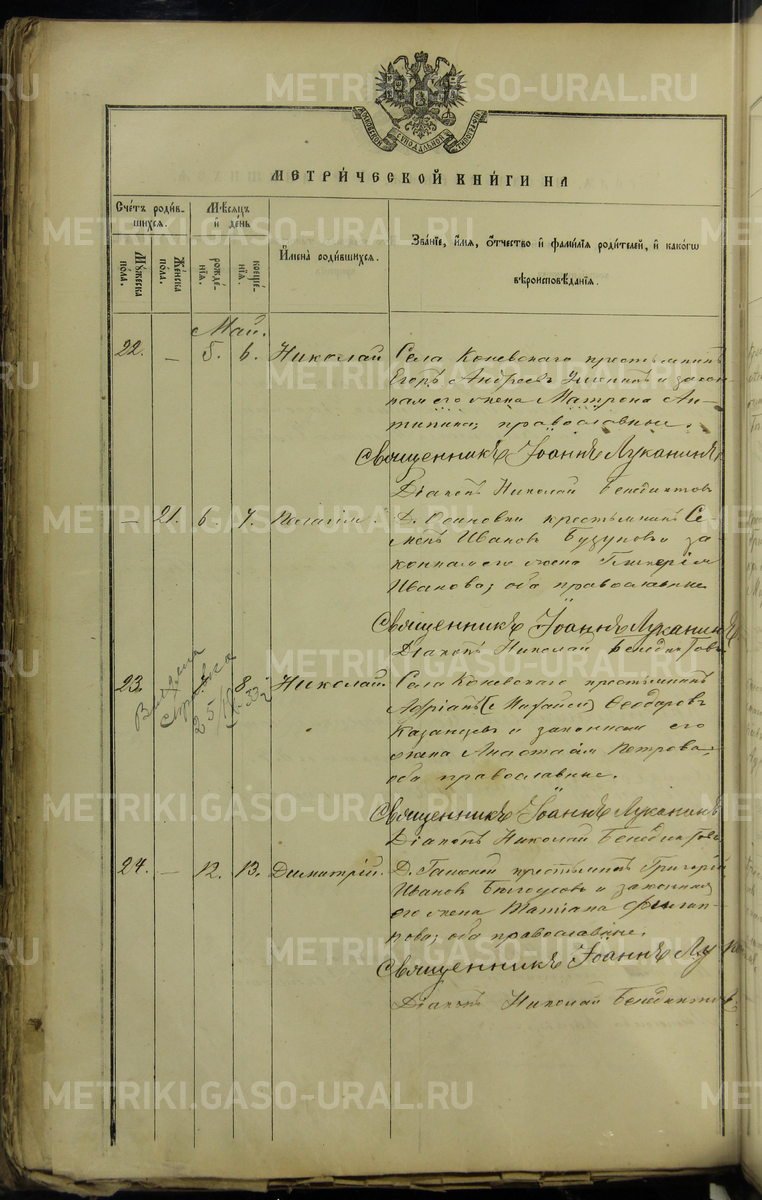 METRIKI.GASO-URAL.RU
МОСКОВСКОЙ СѴНОДАЛЬНОЙ ТИПОГРАФІИ
МЕТРИ́ЧЕСКОЙ КНИ́ГИ НА
Сче́тъ роди́в-
шихся.
Мѣ́сяцъ
и҆ де́нь
И҆мена̀ роди́вшихся.
Зва́нїе, и҆́мя, ѻ҆́тчество и҆ фами́лїя роди́телей, и҆ како́гѡ
вѣроисповѣ́данїя.
Мꙋ́жеска по́ла.
Же́нска по́ла.
рожде́-
нїя.
креще́-
нїя.
Май.
22. — 5. 6. Николай Села Коневскаго крестьянинъ
Егоръ Андреевъ и закон-
ная его жена Матрона Ан-
типина, православные.
Священникъ Іоаннъ Луканинъ
Діаконъ Николай Бенедиктовъ
— 21. 6. 7. Пелагія. Д. Осиновки крестьянинъ Се-
менъ Ивановъ и за
конная его жена Гликерія
Иванова, оба православные
Священникъ Іоаннъ Луканинъ
Діаконъ Николай Бенедиктовъ.
23. 8. Николай. Села Коневскаго крестьянинъ
Адріанъ Ѳеодоровъ
Казанцевъ и законная его
жена Анастасія Петрова,
оба православные.
Выдана
справка
Священникъ Іоаннъ Луканинъ
Діаконъ Николай Бенедиктовъ
24. — 12. 13. Димитрій. Д. крестьянинъ Григорій
Ивановъ и законная
его жена Татіана Филип-
пова, оба православные.
Священникъ Іоаннъ
Діаконъ Николай Бенедиктовъ